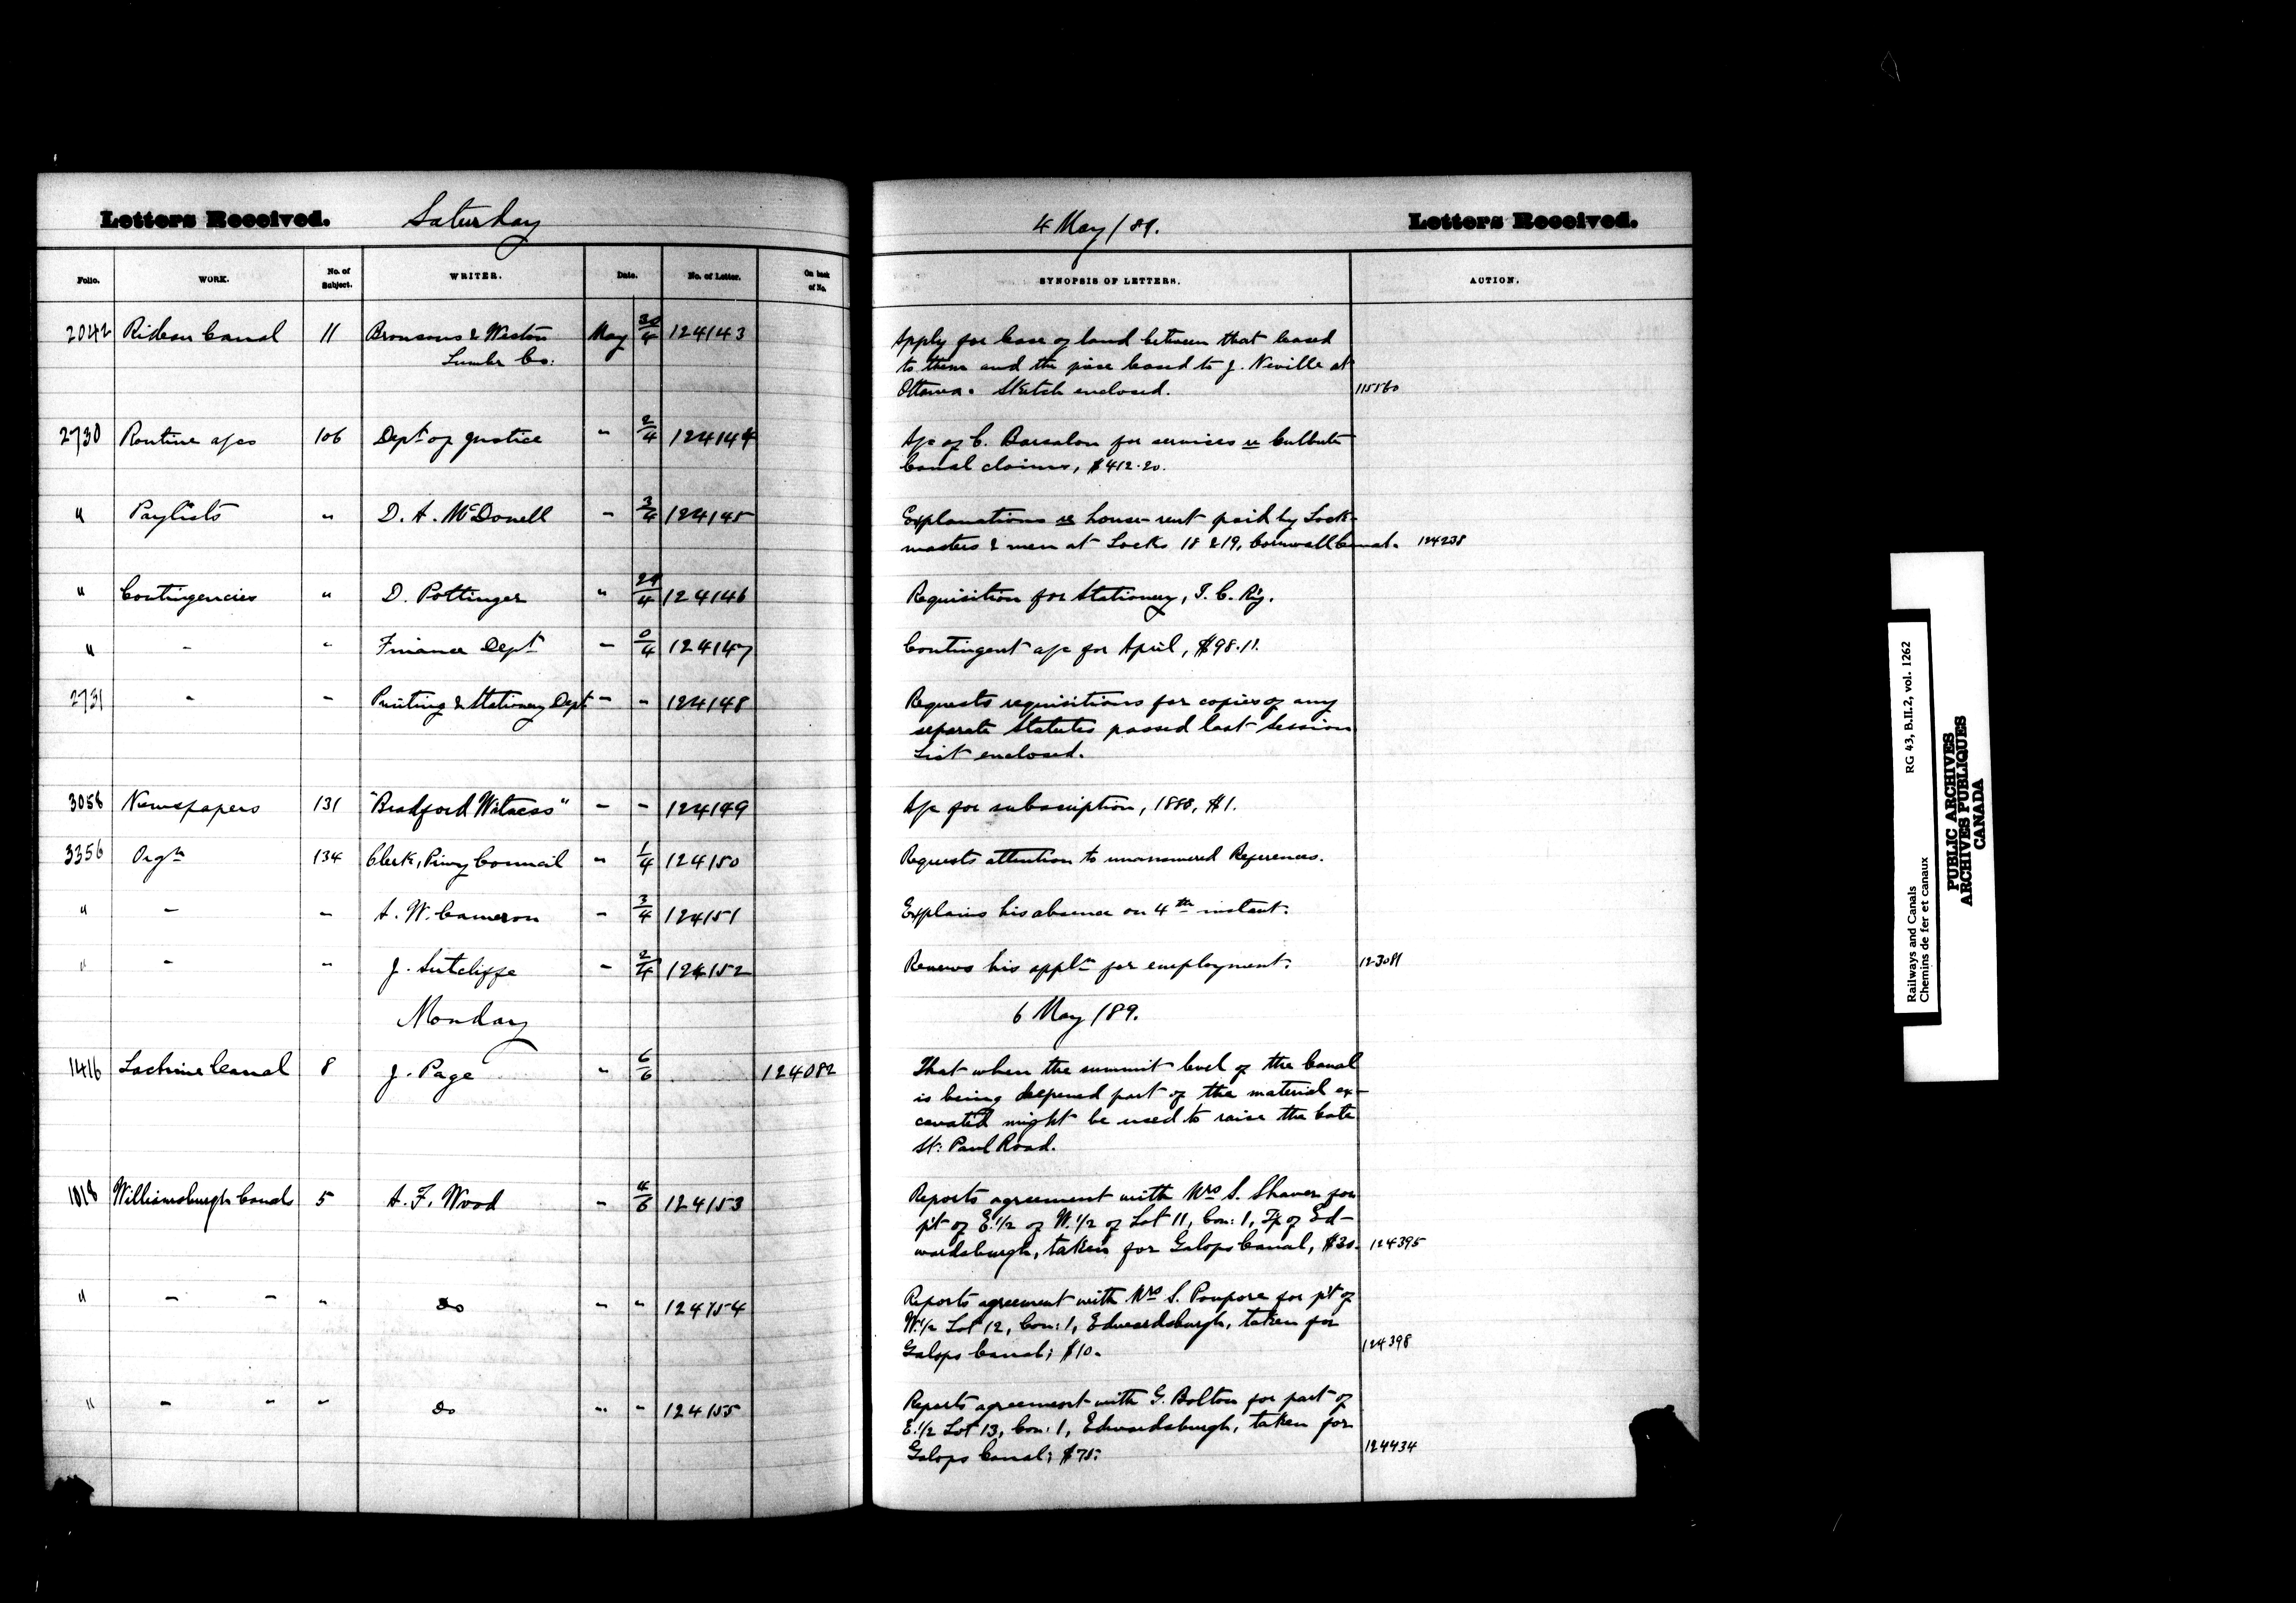 Letters Received. Saturday 4 May /89. Letters Received.
Folio. WORK. No. of Subject. WRITER. Date. No. of Letter. On back of No. SYNOPSIS OF LETTERS. ACTION.
2042 Rideau Canal 11 Bronsons & Weston May 30/4 124143 Apply for lease of land between that leased
Lumber Co: to them and the piece leased to J. Neville at
Ottawa. Sketch enclosed. 115560
2730 Routine a/cs 106 Dept of Justice " 2/4 124144 A/c of C. Barsalou for services re Culbute
Canal claims, $412.20.
" Paylists " D. A. McDonell " 3/4 124145 Explanations re house-rent paid by Lock-
masters & men at Locks 18 & 19, Cornwall Canal. 124238
" Contingencies " D. Pottinger " 29/4 124146 Requisition for Stationery, I. C. Ry.
" " " Finance Dept " 0/4 124147 Contingent a/c for April, $98.11.
2731 " " Printing & Stationery Dept " " 124148 Requests requisitions for copies of any
separate Statutes passed last Session
List enclosed.
3058 Newspapers 131 "Bradford Witness" " " 124149 A/c for subscription, 1888, $1.
3356 Orgn 134 Clerk, Privy Council " 1/4 124150 Requests attention to unanswered References.
" " " A. W. Cameron " 3/4 124151 Explains his absence on 4th instant.
" " " J. Sutcliffe " 2/4 124152 Renews his appln for employment. 123081
Monday 6 May /89.
1416 Lachine Canal 8 J. Page " 6/6 124082 That when the summit level of the Canal
is being deepened part of the material ex-
cavated might be used to raise the Cote
St: Paul Road.
1018 Williamsburgh Canals 5 A. F. Wood " 4/6 124153 Reports agreement with Mrs S. Shaver for
pt of E.1/2 of W.1/2 of Lot 11, Con: 1, Tp of Ed-
wardsburgh, taken for Galops Canal, $30. 124395
" " " " Do " " 124154 Reports agreement with Mrs S. Poupore for pt of
W.1/2 Lot 12, Con: 1, Edwardsburgh, taken for
Galops Canal; $10. 124398
" " " " Do " " 124155 Reports agreement with G. Bolton for part of
E.1/2 Lot 13, Con: 1, Edwardsburgh, taken for
Galops Canal; $75. 124434
Railways and Canals RG 43, B.II.2, vol. 1262
Chemins de fer et canaux
PUBLIC ARCHIVES
ARCHIVES PUBLIQUES
CANADA